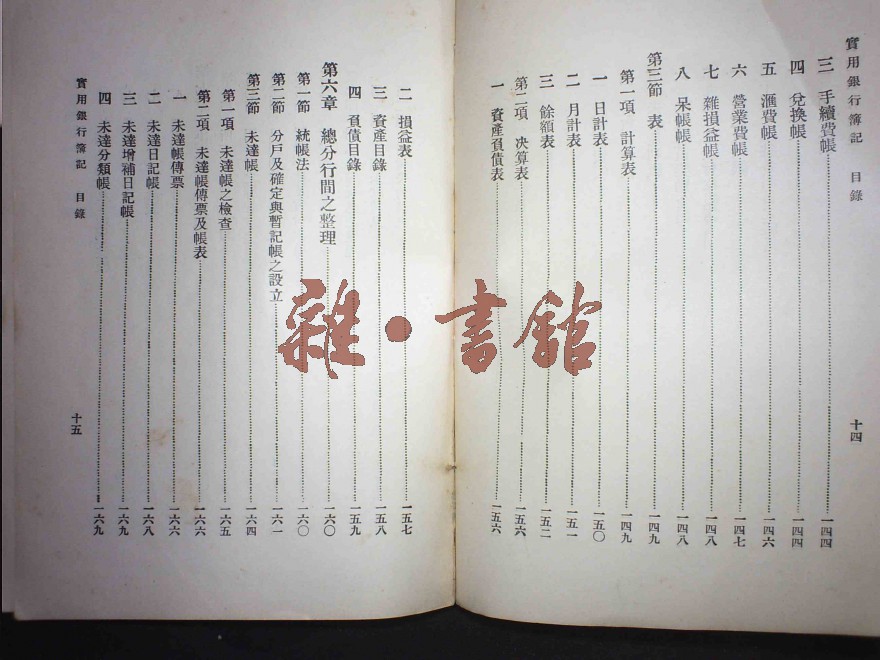 實用銀行簿記 目錄
十四
三 手續費帳 一四四
四 兌換帳 一四四
五 滙費帳 一四六
六 營業費帳 一四七
七 雜損益帳 一四八
八 呆帳帳 一四八
第三節 表 一四九
第一項 計算表 一四九
一 日計表 一五〇
二 月計表 一五一
三 餘額表 一五二
第二項 決算表 一五六
一 資產負債表 一五六
二 損益表 一五七
三 資產目錄 一五八
四 負債目錄 一五九
第六章 總分行間之整理 一六〇
第一節 統帳法 一六〇
第二節 分戶及確定與暫記帳之設立 一六一
第三節 未達帳 一六四
第一項 未達帳之檢查 一六五
第二項 未達帳傳票及帳表 一六六
一 未達帳傳票 一六六
二 未達日記帳 一六八
三 未達增補日記帳 一六九
四 未達分類帳 一六九
實用銀行簿記 目錄
十五
雜·書館